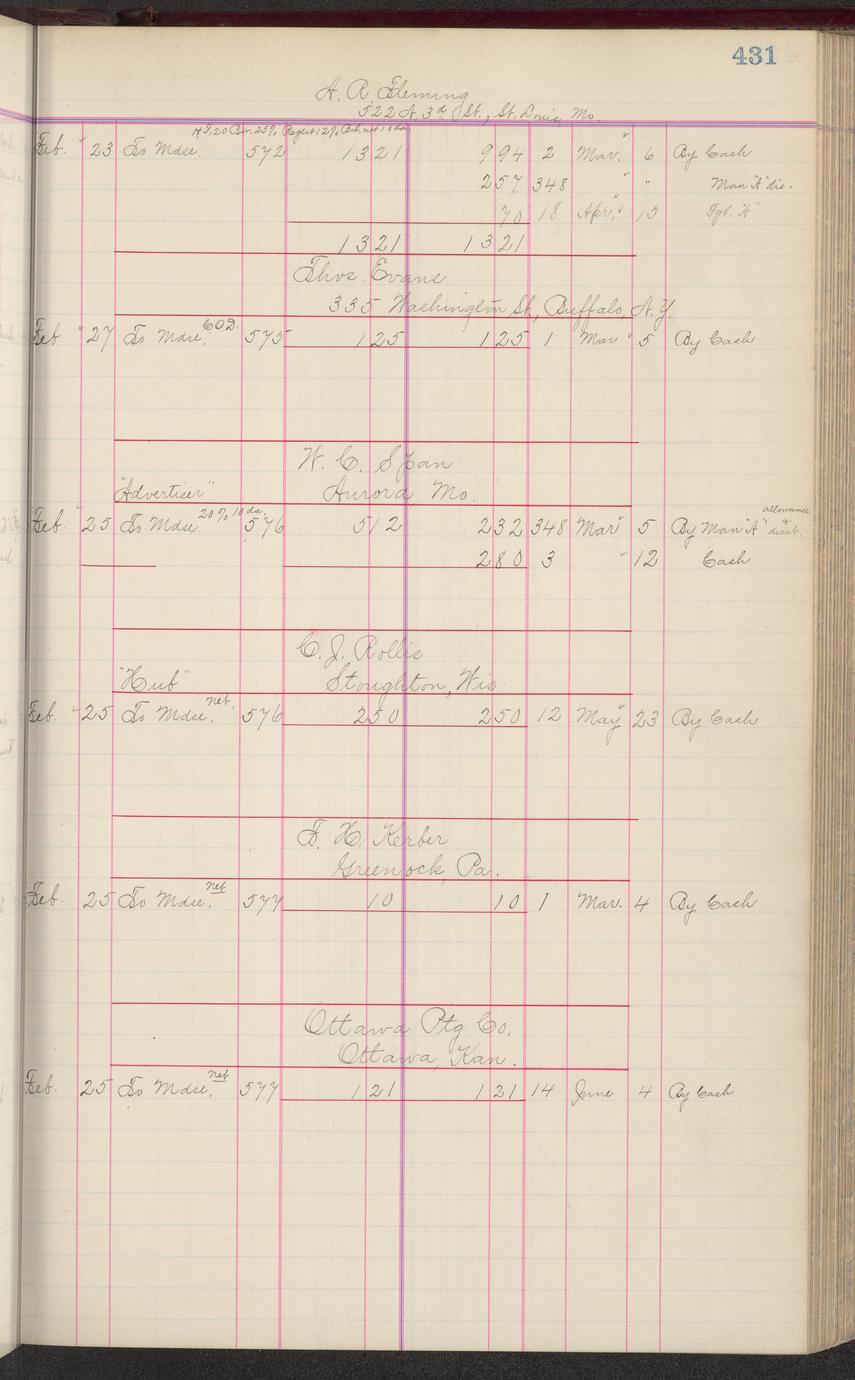 431
H. R. Fleming
522 N. 3d St., St. Louis, Mo.
Feb. " 23 To Mdse. 572 1321 994 2 Mar. " 6 By Cash
257 348 " " Man "A" dis.
70 18 Apr. " 15 Fgt. "A"
1321 1321
Thos. Evans
335 Washington St., Buffalo, N.Y.
Feb " 27 To Mdse, C.O.D. 575 125 125 1 Mar " 5 By Cash
W. C. Span
"Advertiser" Aurora, Mo.
Feb. " 25 To Mdse. 20% 10 da. 576 512 232 348 Mar " 5 By Man "A" allowance & disct.
280 3 " 12 Cash
C. J. Rollis
"Hub" Stoughton, Wis
Feb. " 25 To Mdse. net. 576 250 250 12 May " 23 By Cash
F. H. Kerber
Greenock, Pa.
Feb. 25 To Mdse, net 577 10 10 1 Mar. 4 By Cash
Ottawa Ptg Co.
Ottawa, Kan.
Feb. 25 To Mdse, net 577 121 121 14 June 4 By Cash